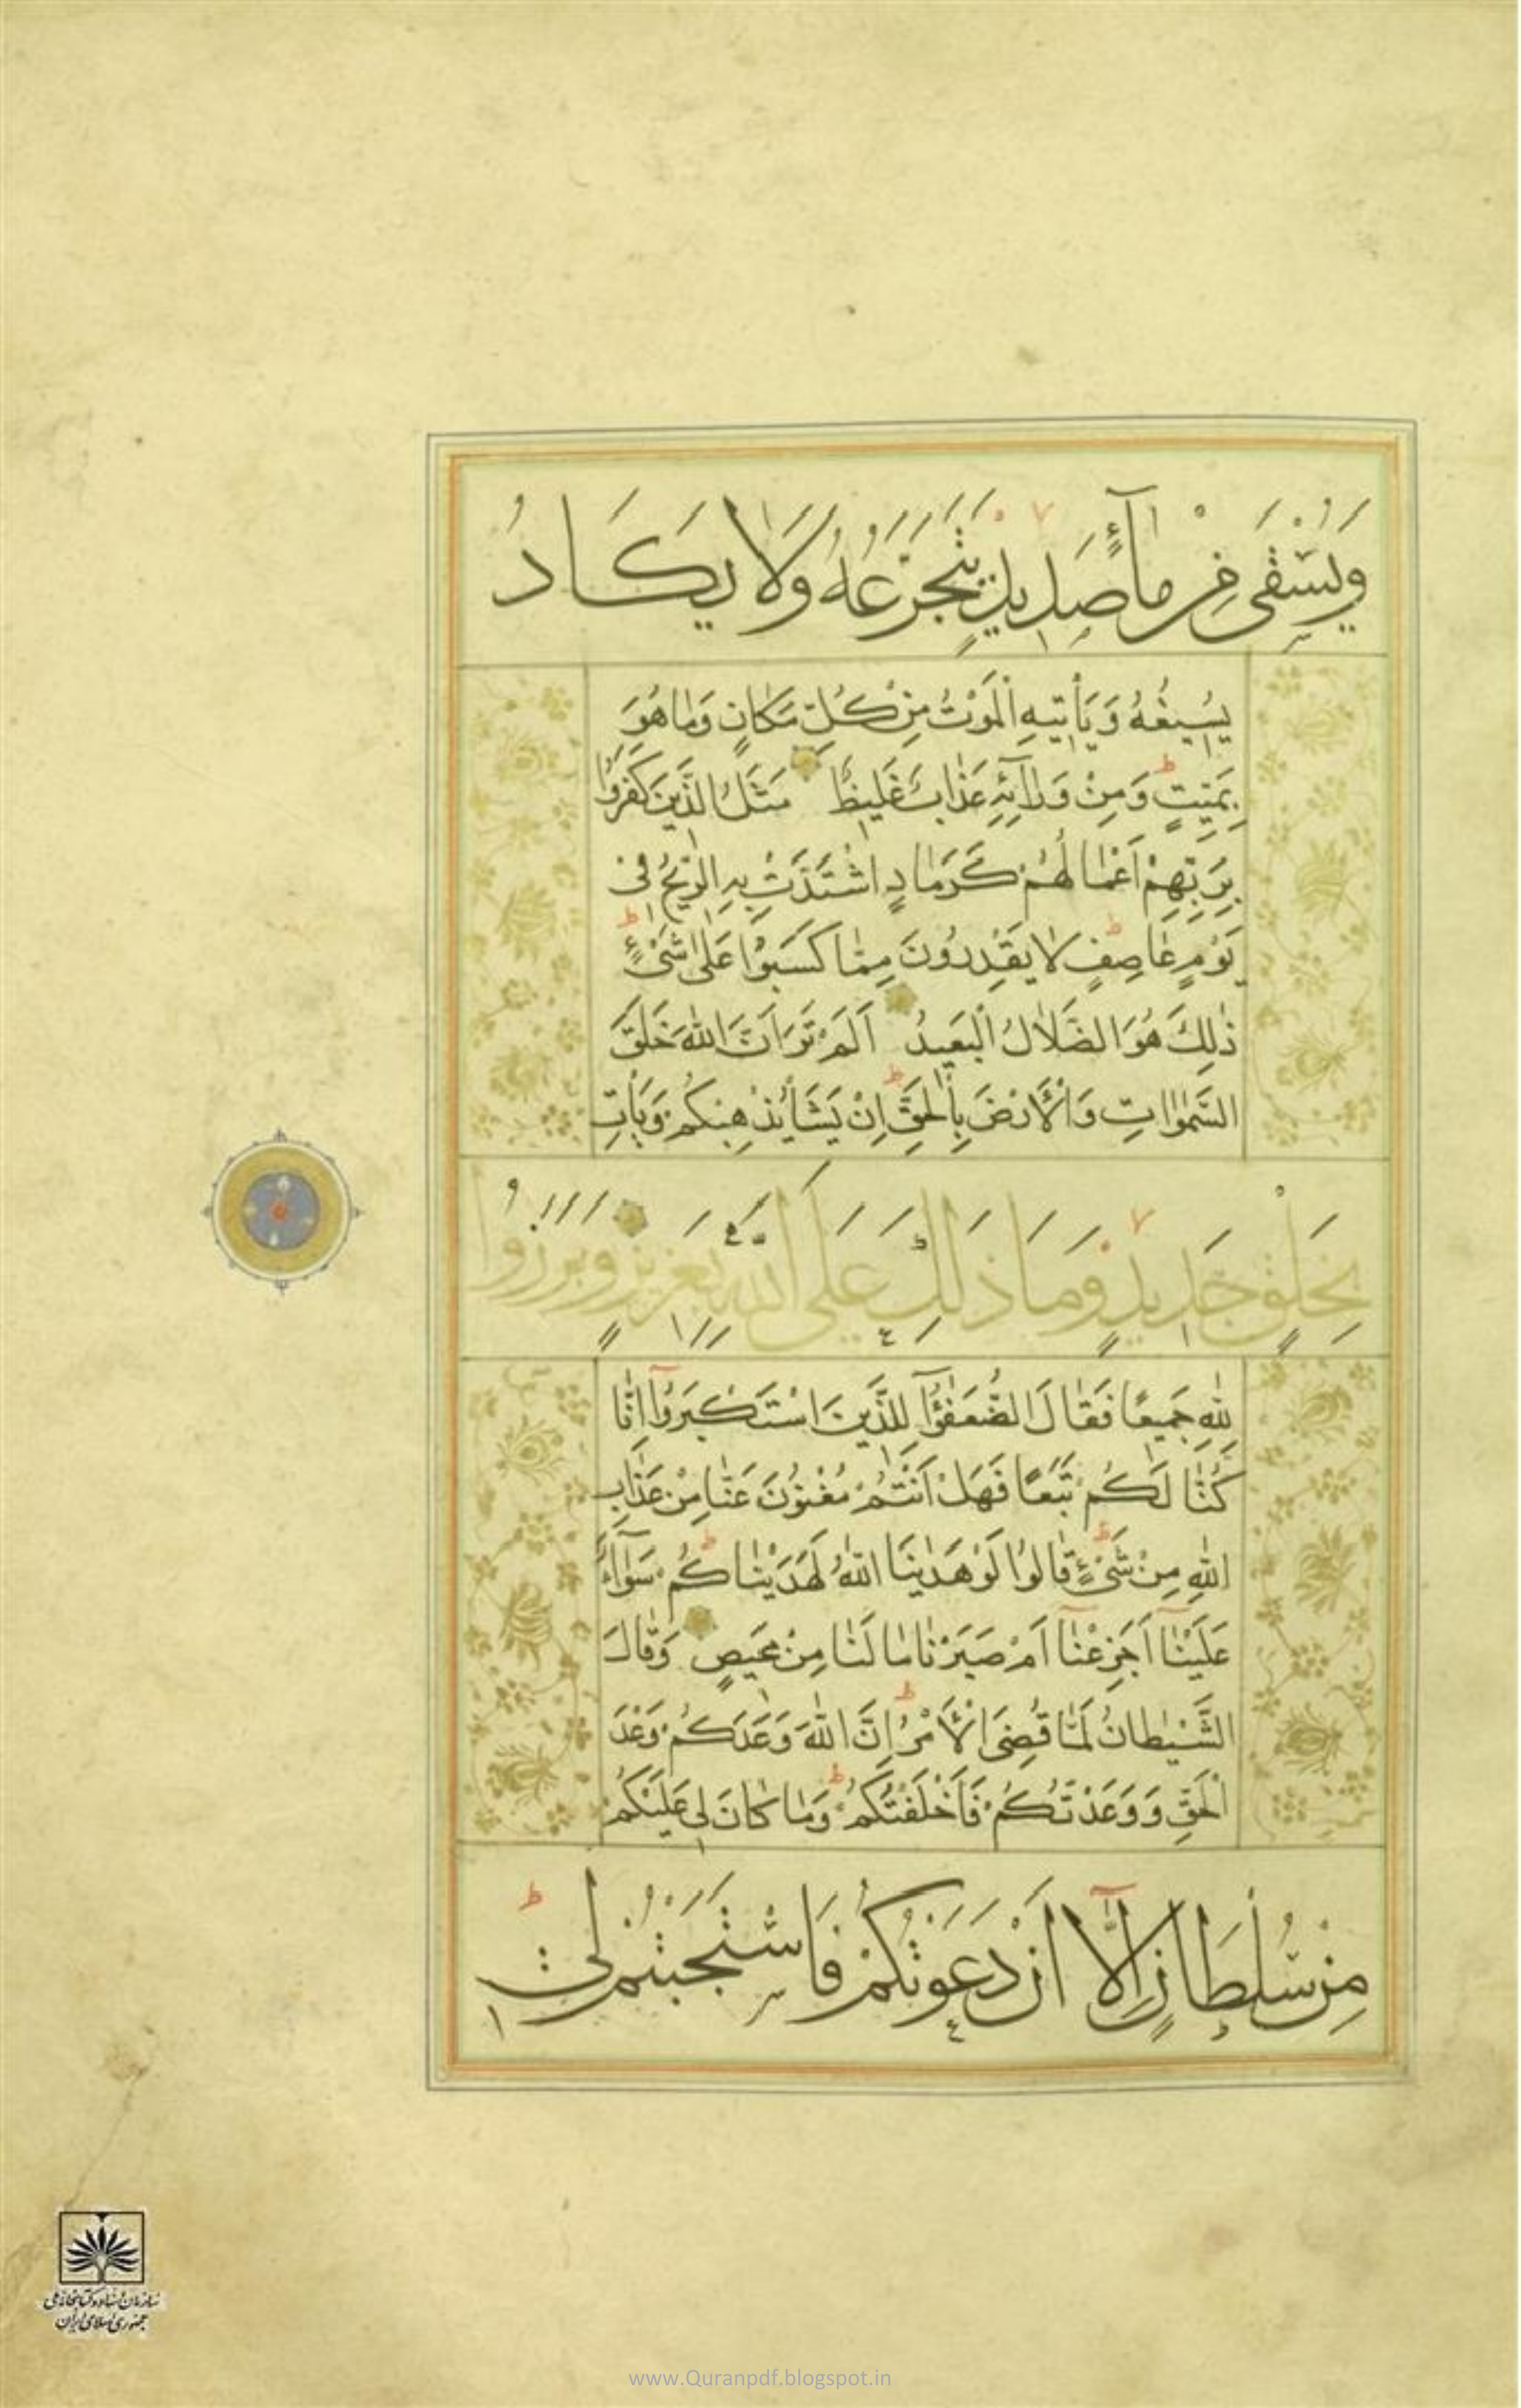 وَيُسْقٰى مِنْ مٰآءٍ صَدِيدٍ يَتَجَرَّعُهُ وَلَا يَكَادُ
يُسِيغُهُ وَيَأْتِيهِ الْمَوْتُ مِنْ كُلِّ مَكٰانٍ وَمٰا هُوَ
بِمَيِّتٍ وَمِنْ وَرٰآئِهِ عَذٰابٌ غَلِيظٌ مَثَلُ الَّذِينَ كَفَرُوا
بِرَبِّهِمْ اَعْمٰالُهُمْ كَرَمٰادٍ اشْتَدَّتْ بِهِ الرِّيحُ فِي
يَوْمٍ عٰاصِفٍ لٰا يَقْدِرُونَ مِمّٰا كَسَبُوا عَلٰى شَيْءٍ
ذٰلِكَ هُوَ الضَّلٰالُ الْبَعِيدُ اَلَمْ تَرَ اَنَّ اللّٰهَ خَلَقَ
السَّمٰوٰاتِ وَالْاَرْضَ بِالْحَقِّ اِنْ يَشَأْ يُذْهِبْكُمْ وَيَأْتِ
بِخَلْقٍ جَدِيدٍ وَمَا ذٰلِكَ عَلَى اللّٰهِ بِعَزِيزٍ وَبَرَزُوا
لِلّٰهِ جَمِيعًا فَقٰالَ الضُّعَفٰٓؤُا لِلَّذِينَ اسْتَكْبَرُوٓا اِنّٰا
كُنّٰا لَكُمْ تَبَعًا فَهَلْ اَنْتُمْ مُغْنُونَ عَنّٰا مِنْ عَذٰابِ
اللّٰهِ مِنْ شَيْءٍ قٰالُوا لَوْ هَدٰينَا اللّٰهُ لَهَدَيْنٰاكُمْ سَوٰآءٌ
عَلَيْنٰٓا اَجَزِعْنٰٓا اَمْ صَبَرْنٰا مٰا لَنٰا مِنْ مَحِيصٍ وَقٰالَ
الشَّيْطٰانُ لَمّٰا قُضِيَ الْاَمْرُ اِنَّ اللّٰهَ وَعَدَكُمْ وَعْدَ
الْحَقِّ وَوَعَدْتُكُمْ فَاَخْلَفْتُكُمْ وَمٰا كٰانَ لِي عَلَيْكُمْ
مِنْ سُلْطَانٍ اِلَّآ اَنْ دَعَوْتُكُمْ فَاسْتَجَبْتُمْ لِي
سازمان اسناد و کتابخانه ملی
جمهوری اسلامی ایران
www.Quranpdf.blogspot.in